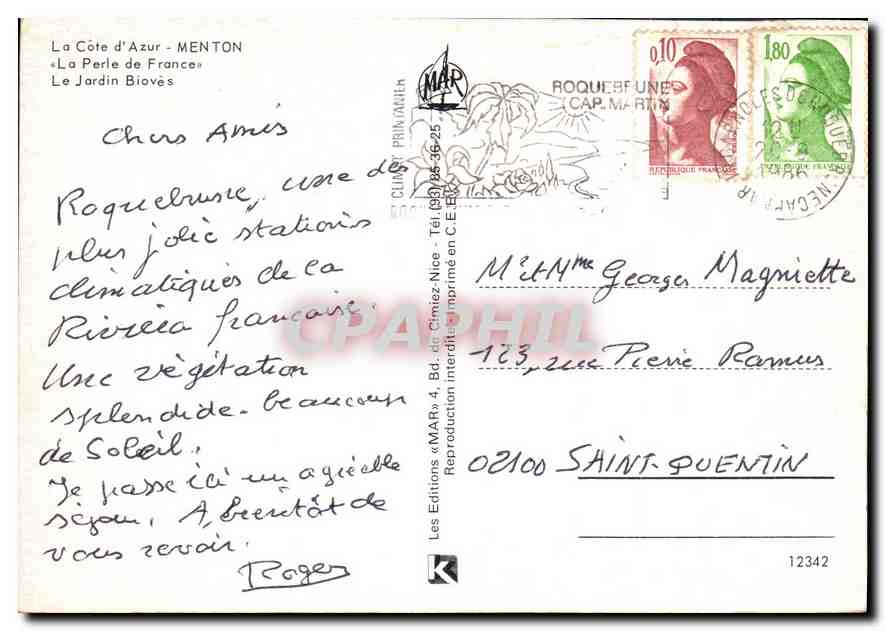 La Côte d'Azur - MENTON
«La Perle de France»
Le Jardin Biovès
Chers Amis
Roquebrune, une des
plus jolie stations
climatiques de la
Riviéra française.
Une végétation
splendide - beaucoup
de Soleil.
Je passe ici un agréable
séjour. A bientôt de
vous revoir.
Roger
MAR
Les Editions «MAR» 4, Bd. de Cimiez-Nice - Tél.(93) 85-36-25
Reproduction interdite - Imprimé en C.E.E.
CLIMAT PRINTANIER
ROQUEBRUNE
CAP MARTIN
0,10
REPUBLIQUE FRANÇAISE
1,80
REPUBLIQUE FRANÇAISE
1986
Mr et Mme Georges Magniette
123, rue Pierre Ramus
02100 SAINT-QUENTIN
12342
K
CPAPHIL